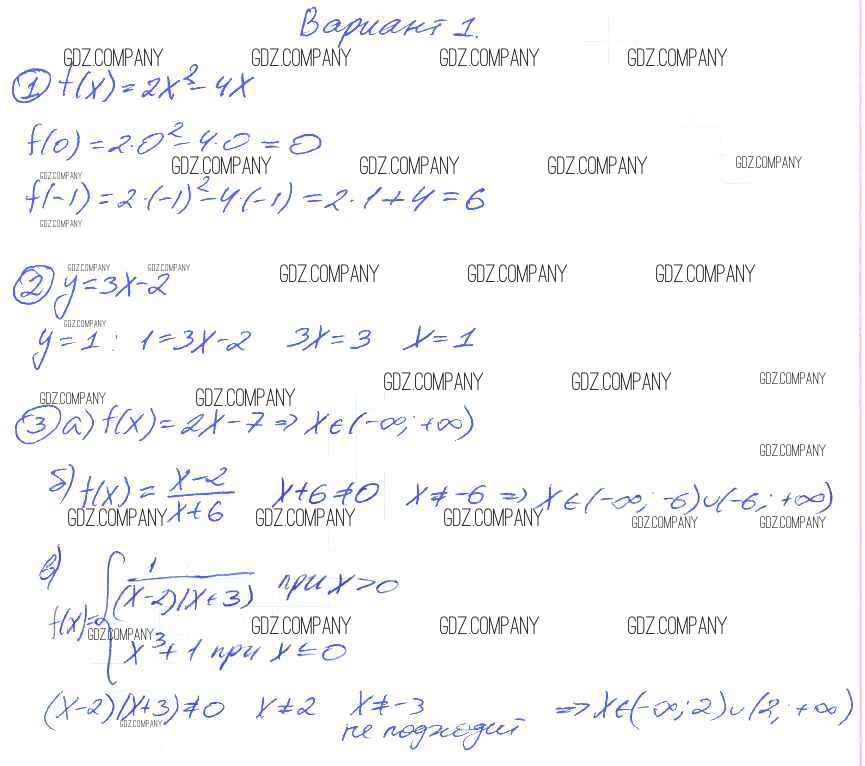 Вариант 1.
GDZ.COMPANY GDZ.COMPANY GDZ.COMPANY GDZ.COMPANY
① f(x) = 2x² - 4x
f(0) = 2·0² - 4·0 = 0
GDZ.COMPANY GDZ.COMPANY GDZ.COMPANY GDZ.COMPANY GDZ.COMPANY
f(-1) = 2·(-1)² - 4·(-1) = 2·1 + 4 = 6
GDZ.COMPANY
GDZ.COMPANY GDZ.COMPANY GDZ.COMPANY GDZ.COMPANY GDZ.COMPANY
② y = 3x - 2
GDZ.COMPANY
y = 1 : 1 = 3x - 2 3x = 3 x = 1
GDZ.COMPANY GDZ.COMPANY GDZ.COMPANY
GDZ.COMPANY GDZ.COMPANY
③ а) f(x) = 2x - 7 => x ∈ (-∞; +∞)
GDZ.COMPANY
б) f(x) = (x-2)/(x+6) x + 6 ≠ 0 x ≠ -6 => x ∈ (-∞; -6) ∪ (-6; +∞)
GDZ.COMPANY GDZ.COMPANY GDZ.COMPANY GDZ.COMPANY GDZ.COMPANY
в) f(x) = { 1/((x-2)(x+3)) при x > 0
GDZ.COMPANY GDZ.COMPANY GDZ.COMPANY GDZ.COMPANY
x³ + 1 при x ≤ 0
(x-2)(x+3) ≠ 0 x ≠ 2 x ≠ -3 => x ∈ (-∞; 2) ∪ (2; +∞)
GDZ.COMPANY
не подходит